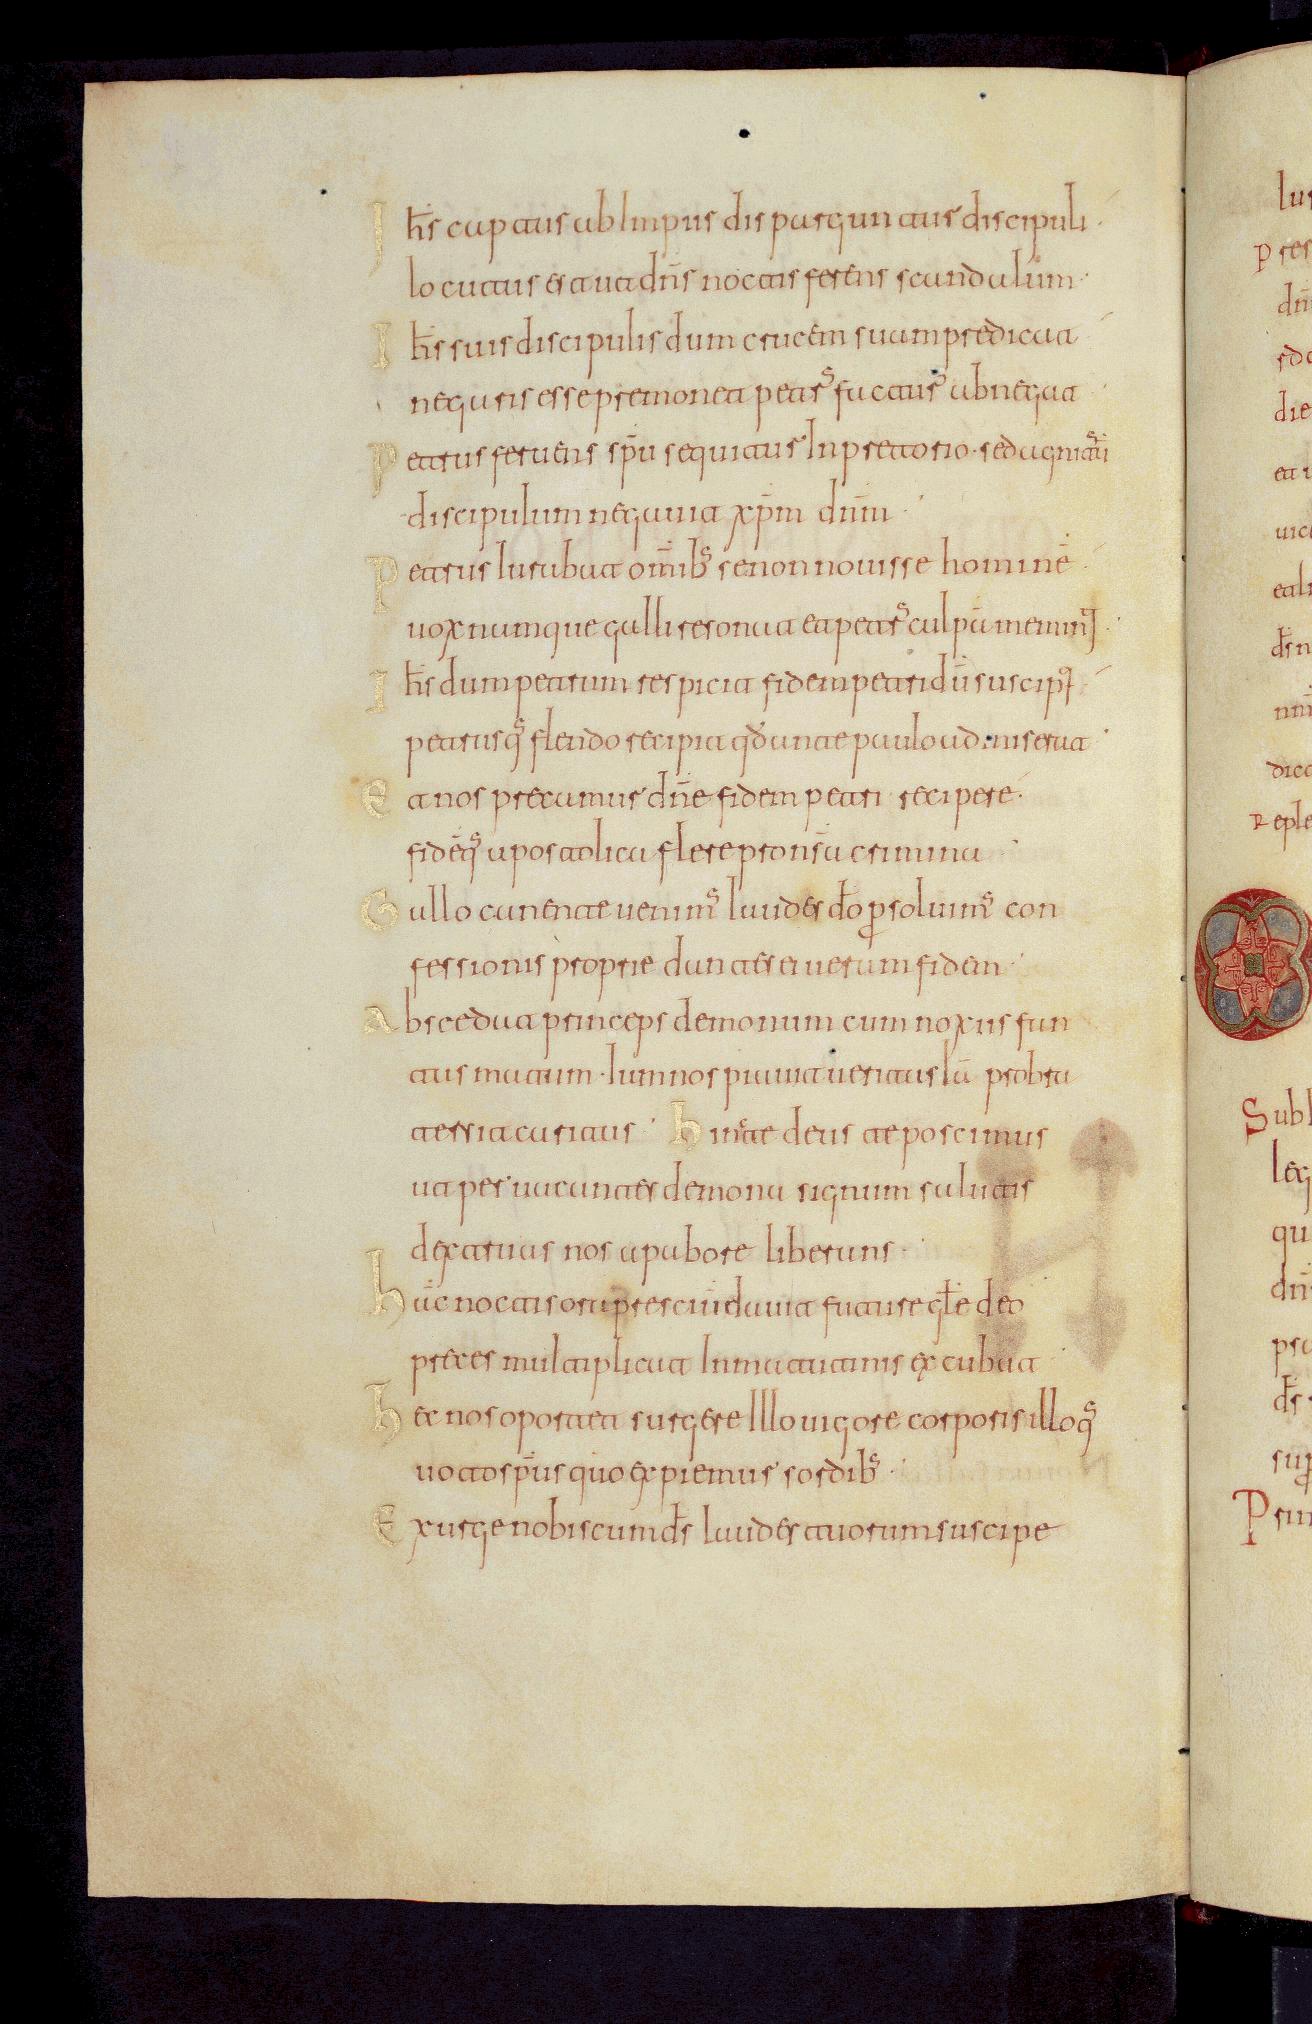 Ihs captus ab Impiis disparguntur discipuli·
locutus erat ut dns noctis ferens scandalum·
Ihs suis discipulis dum crucem suam predicat
negaris esse premonet petrs fuctus abnegat
Petrus feruens spu sequitur In pretorio· sed agnitū
discipulum negauit xpm dnm ·
Petrus Iurabat omibs se non nouisse hominē
uox numque galli resonat et petrs culpā meminit
Ihs dum petrum respicit fidem petri dū suscipit
petrusqs flendo recipit qd ante paulo admiserat
et nos precamur dne fidem petri recipere·
fidēqs apostolica flere pro nsa crimina
Gallo canente uenims laudes do psoluims con
fessionis proprie dantes ei ueram fidem
Abscedat princeps demonum cum noxiis fan
tasmatum· Iam nos piauit ueritas Iā probra
tersit caritas · hinc te deus te poscimus
ut per uacantes demona signum salutis
dextruas nos a pabore liberans·
hac noctis ora prescius dauit future gle deo
preces multiplicat In matutinis excubat
hec nos oportet surgere Illo uigore corporis illoqs
uocto spus quo expiemur sordibs·
Exurge nobiscum ds laudes tuorum suscipe
lus
pres
dn
die
et i
eti
ds n
dico
Reple
Subl
leg
qu
dn
ds
sup
Prin